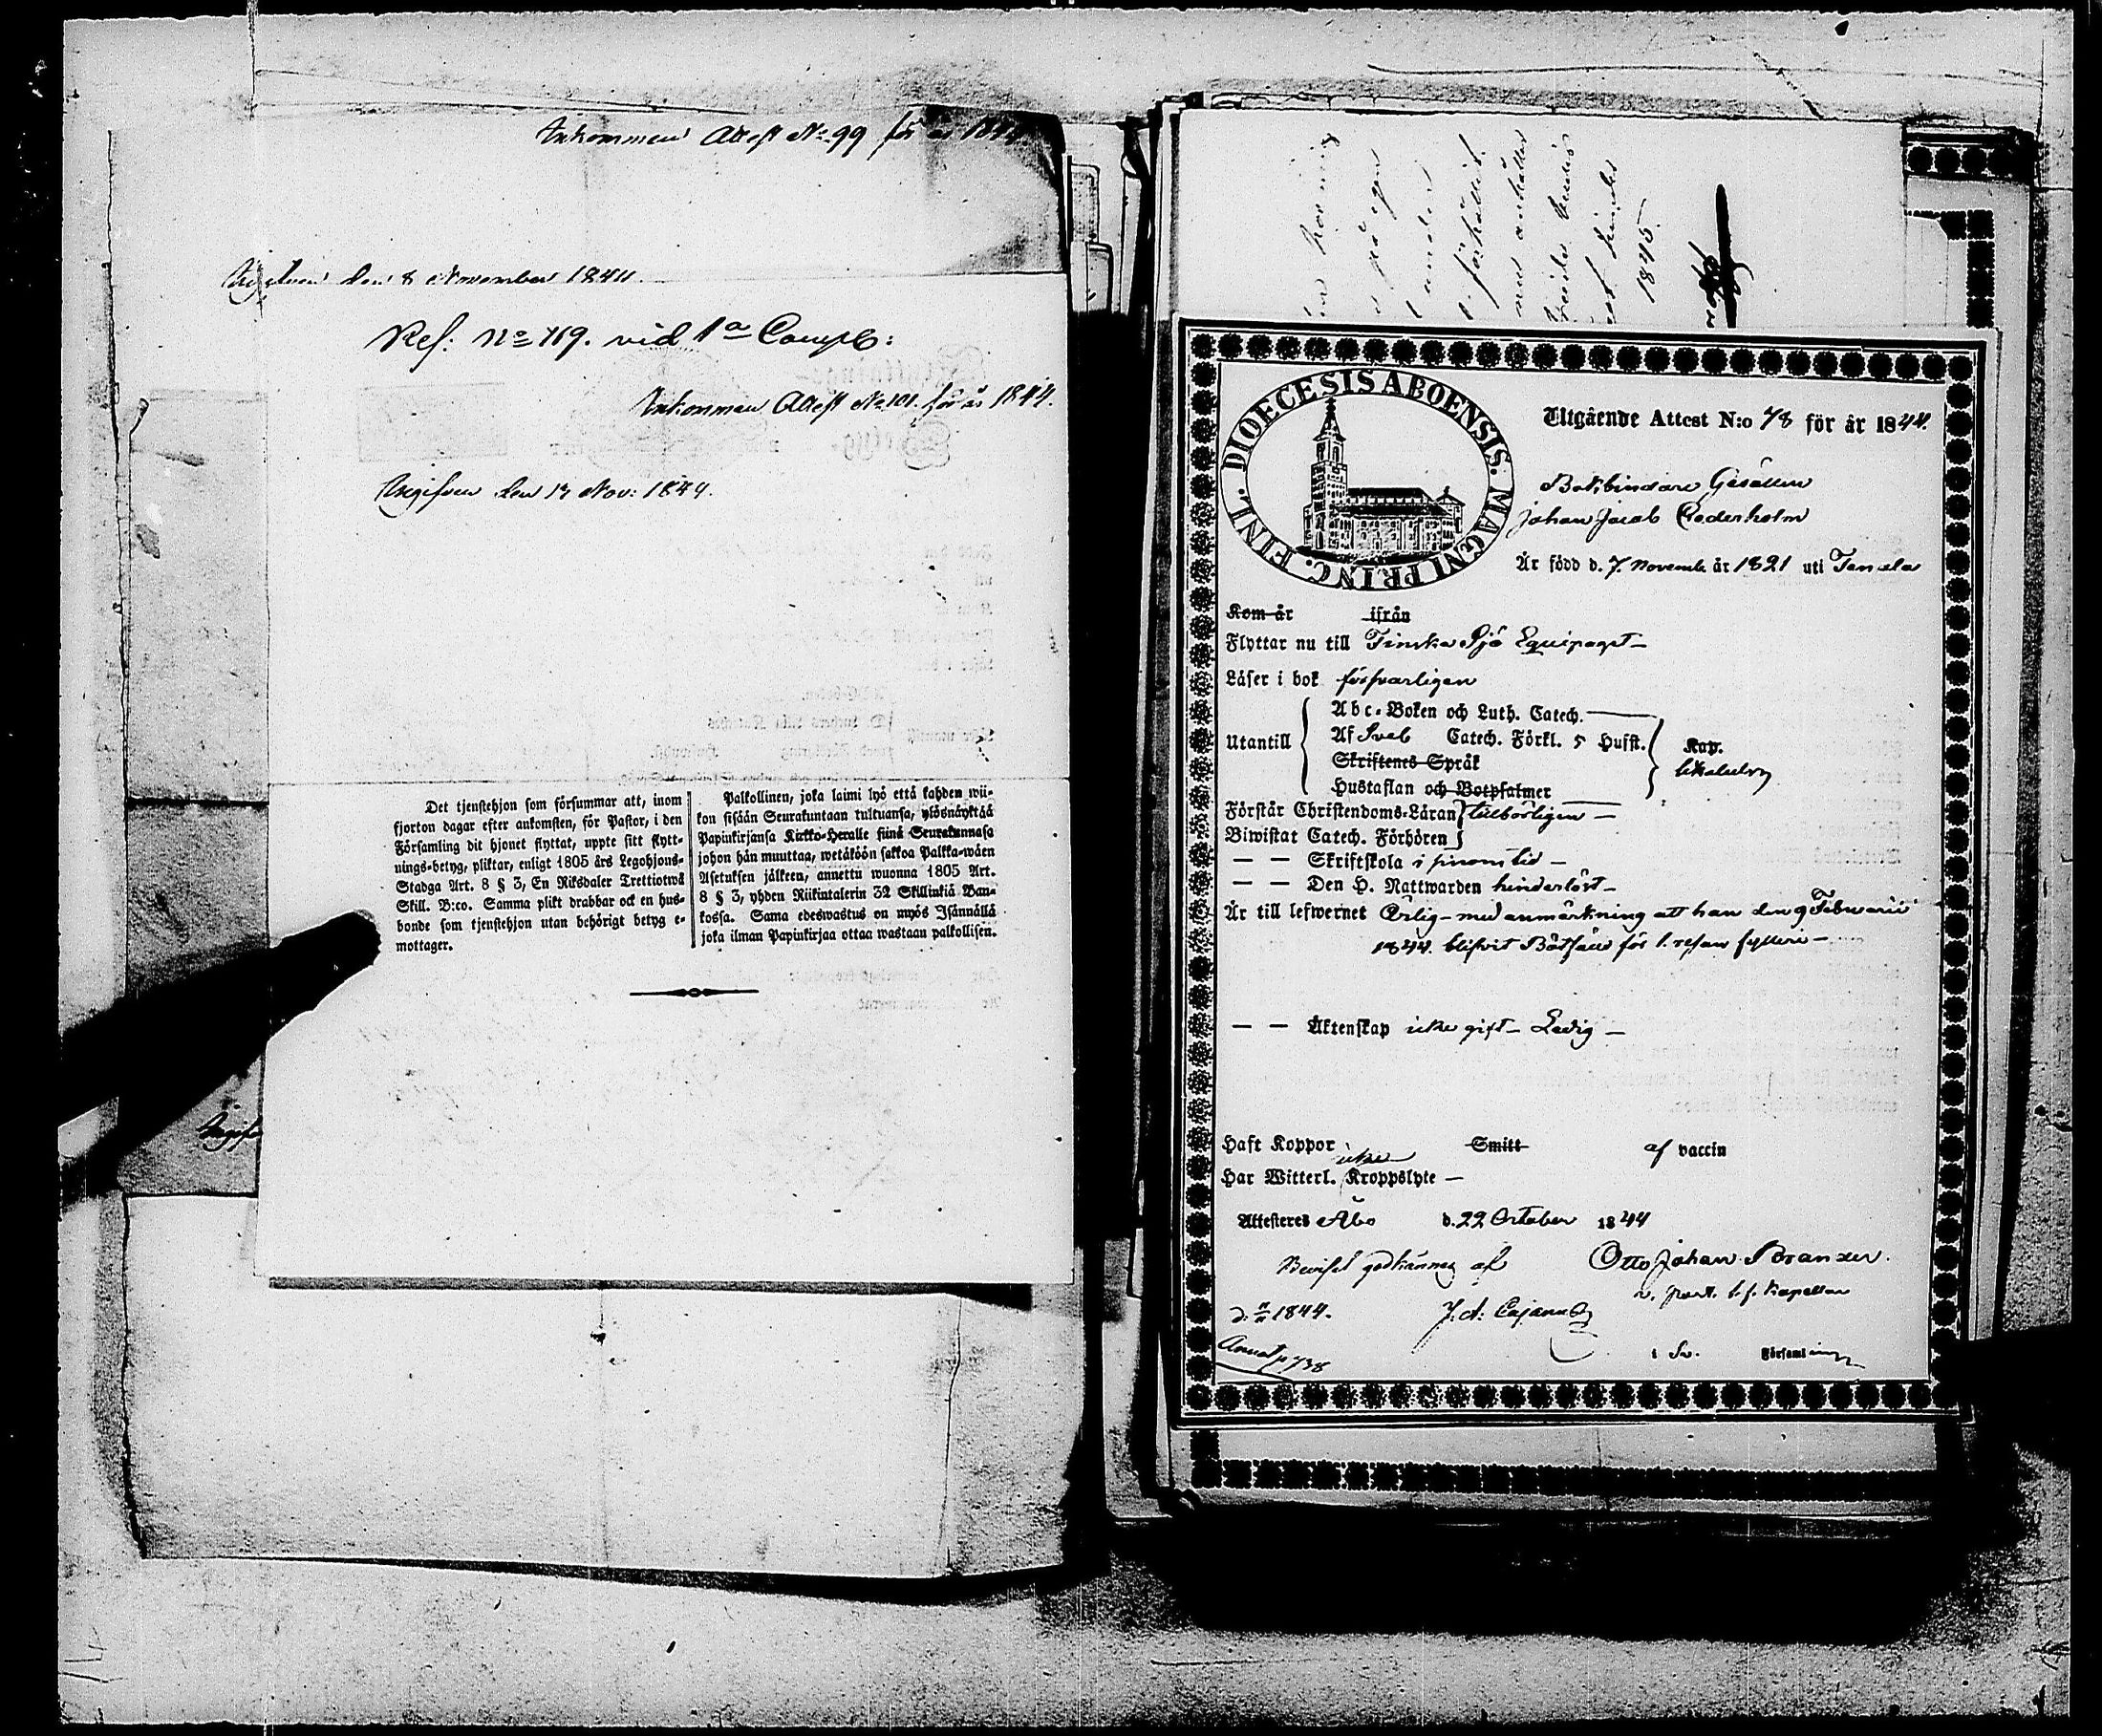 Inkommen Attest No 99 för år 1844
Uppgifven den 8 November 1844.
Ref: No 769. vid 1a Comp:
Inkommen Attest No 101. för år 1844.
Uppgifven den 13 Nov: 1844.
Det tjenstehjon som försummar att, inom
fjorton dagar efter ankomsten, för Pastor, i den
Församling dit hjonet flyttat, uppte sitt flytt-
nings-betyg, pliktar, enligt 1805 års Legohjons-
Stadga Art. 8 § 3, En Riksdaler Trettiotwå
Skill. B:co. Samma plikt drabbar ock en hus-
bonde som tjenstehjon utan behörigt betyg e-
mottager.
Palkollinen, joka laimi lyö että kahden wii-
kon sisään Seurakuntaan tultuansa, ylösnäyttää
Papinkirjansa Kirkko-Heralle siinä Seurakunnasa
johon hän muuttaa, wetäköön sakkoa Palkka-wäen
Asetuksen jälkeen, annettu wuonna 1805 Art.
8 § 3, yhden Riikintalerin 32 Skillinkiä Ban-
kossa. Sama edeswastus on myös Isännällä
joka ilman Papinkirjaa ottaa wastaan palkollisen.
1845.
DIOECESIS ABOENSIS. MAGNI PRINC. FINL.
Utgående Attest N:o 78 för år 1844.
Bokbindare Gesällen
Johan Jacob Cederholm
Är född d. 7. Novemb. år 1821 uti
Kom år ifrån
Flyttar nu till Finska Sjö Equipaget
Läser i bok försvarligen
Abc-Boken och Luth. Catech.
Utantill Af Sveb Catech. Förkl. 5 Hufst. Kap.
Skriftenes Språk
Hustaflan och Botpsalmer
Förstår Christendoms-Läran tillbörligen
Biwistat Catech. Förhören
— — Skriftskola i sinom tid
— — Den H. Nattwarden hinderlöst
Är till lefwernet Ärlig med anmärkning att han den 9 Februarii
1844. blifvit Bötfäld för 1. resan fylleri
— — Äktenskap icke gift Ledig
Haft Koppor Smitt af vaccin
icke
Har Witterl. Kroppslyte —
Attesteres Åbo d. 22 October 1844
Beviset godkännes af Otto Johan
Kapellan
1844. J. A. Cajanus
Annot p 738 i Sv. Församling